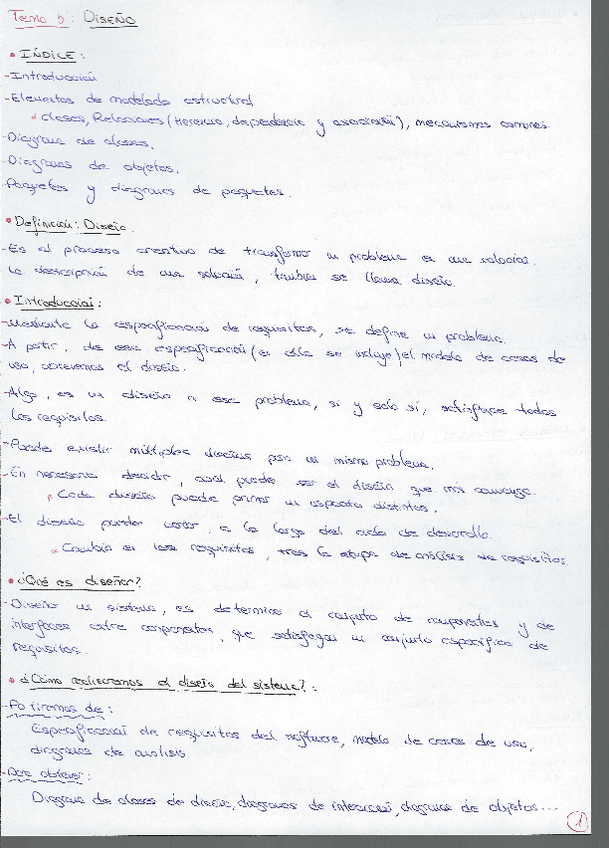 Tema 5: Diseño
• ÍNDICE:
-Introducción
-Elementos de modelado estructural
Clases, Relaciones (Herencia, dependencia y asociación), mecanismos comunes.
-Diagrama de clases.
-Diagramas de objetos.
-Paquetes y diagramas de paquetes.
• Definición: Diseño.
-Es el proceso creativo de transformar un problema en una solución.
La descripción de una solución, también se llama diseño.
• Introducción:
-Mediante la especificación de requisitos, se define un problema.
-A partir, de esa especificación (en ella se incluye) el modelo de casos de
uso, obtenemos el diseño.
-Algo, es un diseño a ese problema, si y solo sí, satisface todos
los requisitos.
-Puede existir múltiples diseños para un mismo problema.
-En necesario decidir, cual puede ser el diseño que más convenga.
Cada diseño puede primar un aspecto distintos.
-El diseño pueden variar, a lo largo del ciclo de desarrollo.
Cambio en los requisitos, tras la etapa de análisis de requisitos.
• ¿Qué es diseñar?
-Diseñar un sistema, es determinar el conjunto de componentes y de
interfaces entre componentes, que satisfagan un conjunto específico de
requisitos.
• ¿Cómo realizaremos el diseño del sistema?:
-Partiremos de:
Especificación de requisitos del software, modelo de casos de uso,
diagramas de análisis.
-Para obtener:
Diagrama de clases de diseño, diagramas de interacción, diagrama de objetos...
1